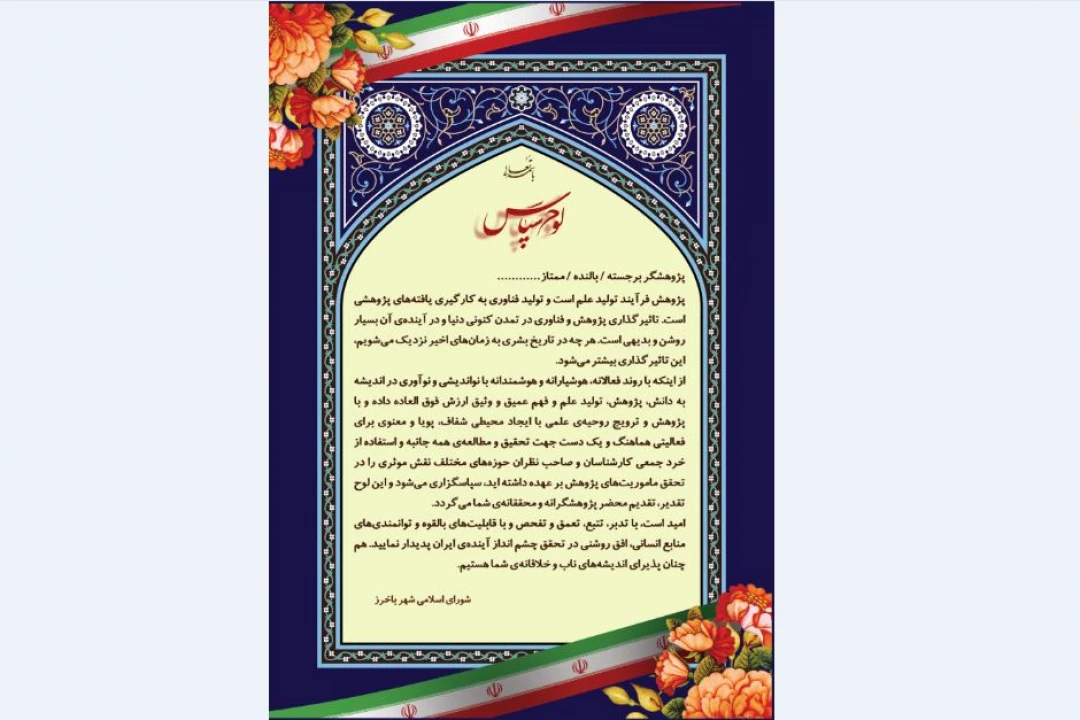 باسمه تعالی
لوح سپاس
پژوهشگر برجسته / بالنده / ممتاز ............
پژوهش فرآیند تولید علم است و تولید فناوری به کارگیری یافته‌های پژوهشی
است. تاثیر گذاری پژوهش و فناوری در تمدن کنونی دنیا و در آینده‌ی آن بسیار
روشن و بدیهی است. هر چه در تاریخ بشری به زمان‌های اخیر نزدیک می‌شویم،
این تاثیر گذاری بیشتر می‌شود.
از اینکه با روند فعالانه، هوشیارانه و هوشمندانه با نواندیشی و نوآوری در اندیشه
به دانش، پژوهش، تولید علم و فهم عمیق و وثیق ارزش فوق العاده داده و با
پژوهش و ترویج روحیه‌ی علمی با ایجاد محیطی شفاف، پویا و معنوی برای
فعالیتی هماهنگ و یک دست جهت تحقیق و مطالعه‌ی همه جانبه و استفاده از
خرد جمعی کارشناسان و صاحب نظران حوزه‌های مختلف نقش موثری را در
تحقق ماموریت‌های پژوهش بر عهده داشته اید، سپاسگزاری می‌شود و این لوح
تقدیر، تقدیم محضر پژوهشگرانه و محققانه‌ی شما می گردد.
امید است، با تدبر، تتبع، تعمق و تفحص و با قابلیت‌های بالقوه و توانمندی‌های
منابع انسانی، افق روشنی در تحقق چشم انداز آینده‌ی ایران پدیدار نمایید. هم
چنان پذیرای اندیشه‌های ناب و خلاقانه‌ی شما هستیم.
شورای اسلامی شهر باخرز